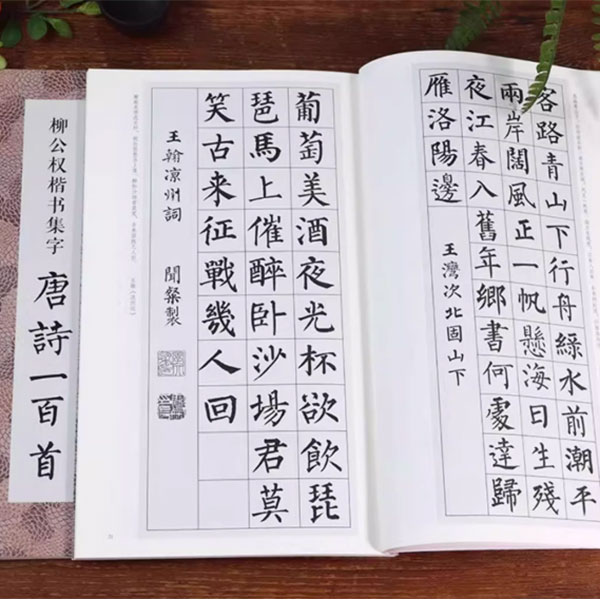 柳公权楷书集字
唐詩一百首
客路青山下行舟綠水前潮平
兩岸闊風正一帆懸海日生殘
夜江春入舊年鄉書何處達歸
雁洛陽邊
王灣次北固山下
葡萄美酒夜光杯欲飲琵
琶馬上催醉卧沙場君莫
笑古来征戰幾人回
王翰凉州詞 聞粲製